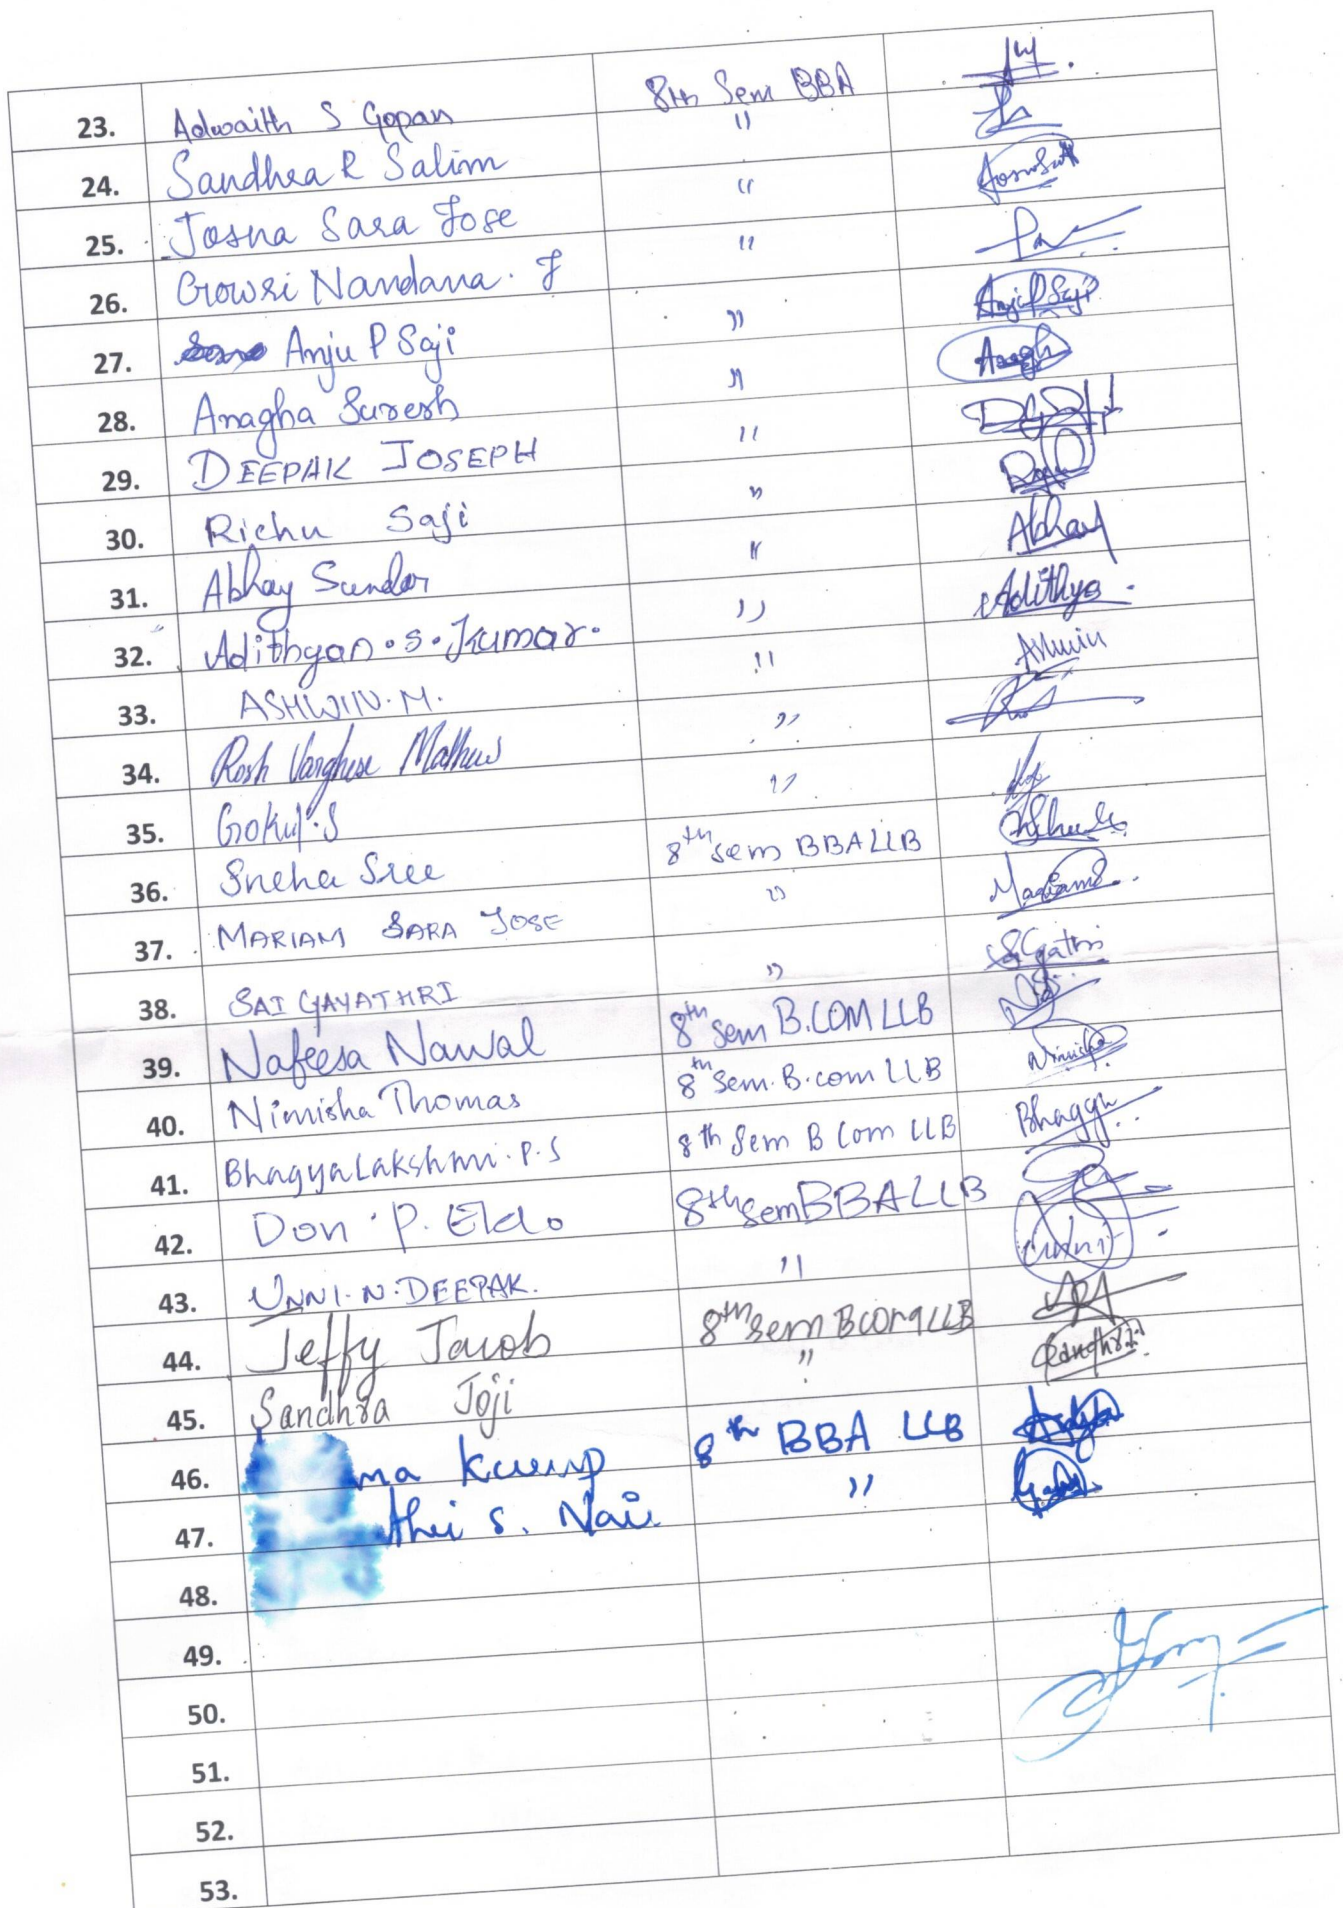 23. Adwaith S Gopan 8th Sem BBA
24. Sandhra R Salim "
25. Josna Sara Jose "
26. Gowri Nandana. J "
27. Anju P Saji " Anju P Saji
28. Anagha Suresh " Anagh
29. DEEPAK JOSEPH "
30. Richu Saji "
31. Abhay Sundar " Abhay
32. Adithyan.s.Kumar. " Adithya
33. ASHWIN.M. " Ashwin
34. Rosh Varghese Mathew "
35. Gokul.S "
36. Sneha Sree 8th sem BBA LLB
37. MARIAM SARA JOSE " Mariam
38. SAI GAYATHRI "
39. Nafeesa Nawal 8th sem B.COM LLB
40. Nimisha Thomas 8th Sem. B.com LLB Nimisha
41. Bhagya Lakshmi.P.S 8th Sem B Com LLB Bhagya
42. Don.P.Eldo 8th sem BBA LLB
43. UNNI.N.DEEPAK. " Unni
44. Jeffy Jacob 8th sem Bcom LLB
45. Sandhra Joji " Sandhra
46. ma kurup 8th BBA LLB
47. thri S. Nair "
48.
49.
50.
51.
52.
53.